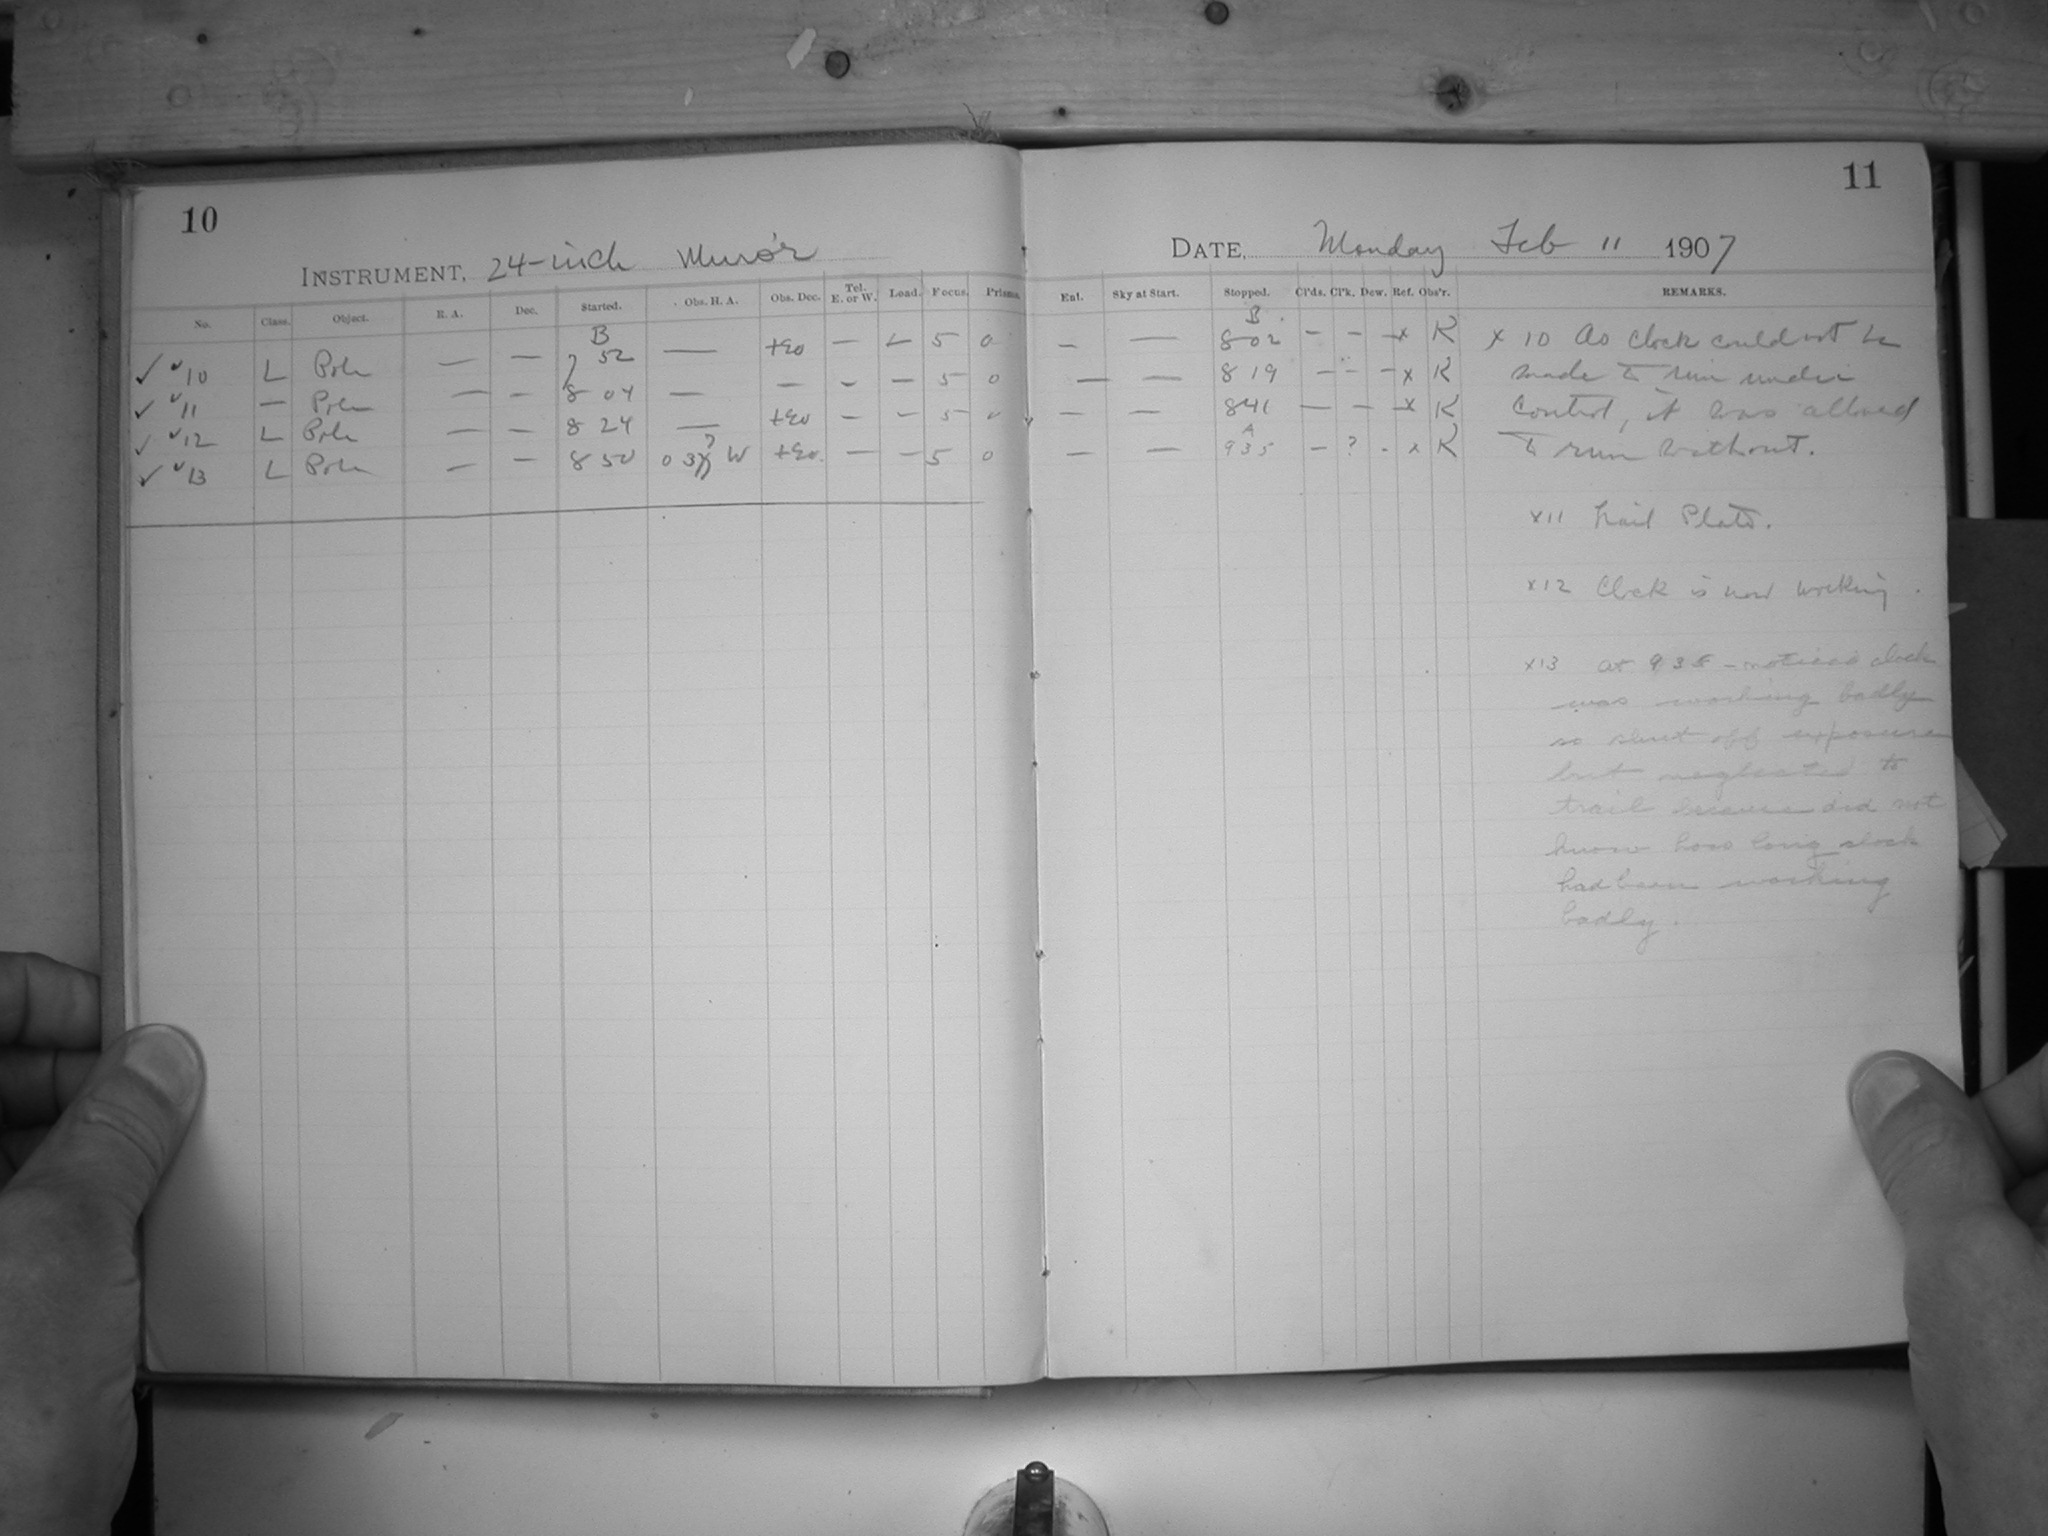 10
INSTRUMENT, 24-inch Mirror
No. Class. Object. R. A. Dec. Started. Obs. H. A. Obs. Dec. Tel. E. or W. Load. Focus. Prisms.
B
✓ ✓10 L Pole — — 7 52 — +90 — L 5 0
✓ ✓11 — Pole — — 8 04 — — - — 5 0
✓ ✓12 L Pole — — 8 24 — +90 — - 5 0
✓ ✓13 L Pole — — 8 50 0 3 ? W +90. — — 5 0
11
DATE, Monday Feb 11 1907
Ent. Sky at Start. Stopped. Cl'ds. Cl'k. Dew. Ref. Obs'r. REMARKS.
B.
— — 8 02 - - - x K
— — 8 19 - - - x K
— — 8 41 — — - x K
A
— — 9 35 - ? - x K
x 10 As clock could not be
made to run under
control, it was allowed
to run without.
x11 Trail Plate.
x12 Clock is now working.
x13 at 9 35 - noticed clock
was working badly
so shut off exposure
but neglected to
trail because did not
know how long clock
had been working
badly.